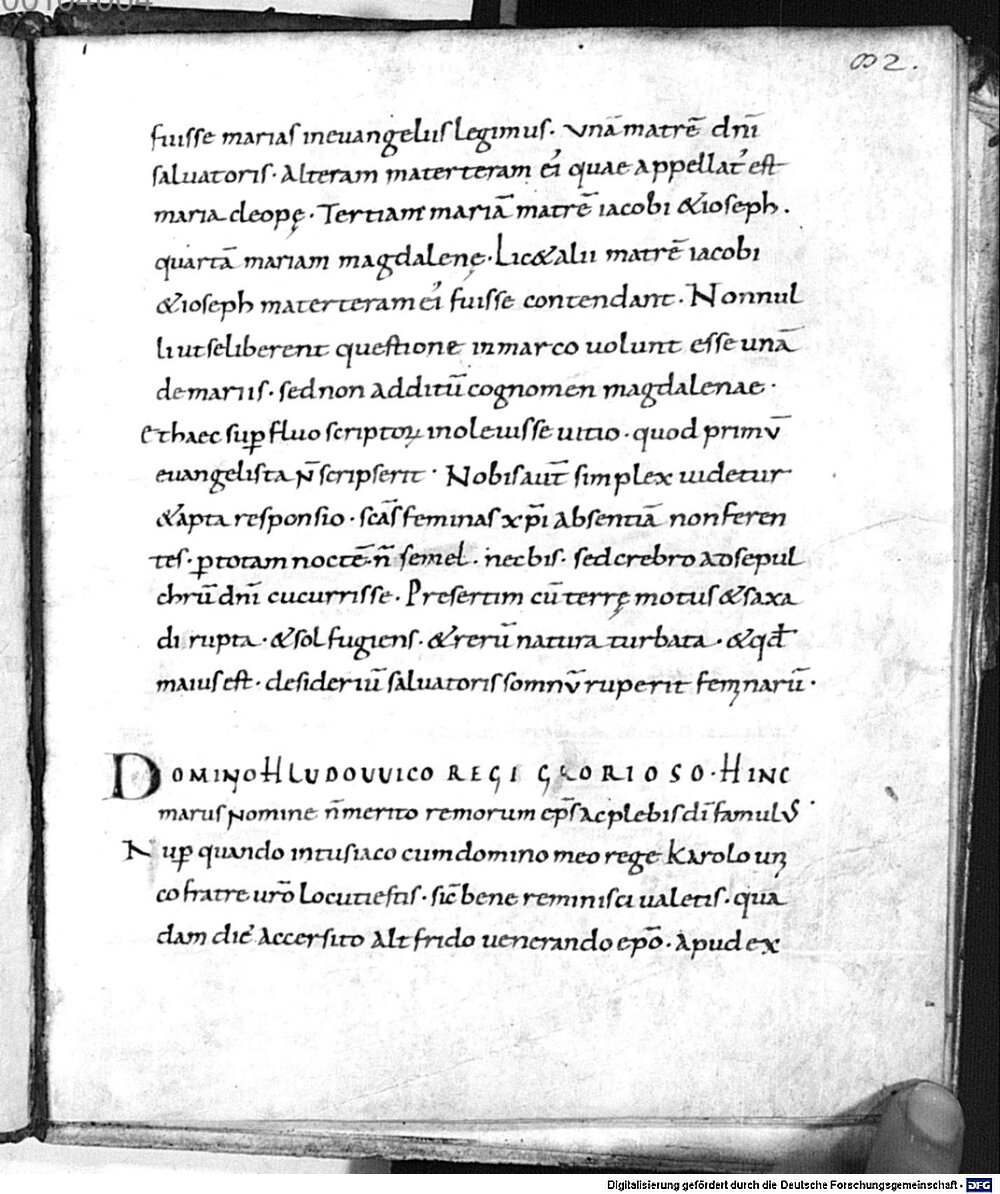 00104004
002.
fuisse marias in euangeliis legimus. unā matrē dn̄i
saluatoris. Alteram materteram ei' quae appellat' est
maria cleopę. Tertiam mariā matrē iacobi & ioseph.
quartā mariam magdalenę. Lic& alii matrē iacobi
& ioseph materteram ei' fuisse contendant. Nonnul
li ut se liberent questione in marco uolunt esse unā
de mariis. sed non additū cognomen magdalenae.
et haec sup̄fluo scriptoꝝ inoleuisse uitio. quod primū
euangelista n̄ scripserit. Nobis aut̄ simplex uidetur
& apta responsio. sc̄as feminas xp̄i absentiā non feren
tes. ꝑ totam noctē. n̄ semel. nec bis. sed crebro ad sepul
chrū dn̄i cucurrisse. Presertim cū terrę motus & saxa
dirupta. & sol fugiens. & rerū natura turbata. & qd̄
maius est. desideriū saluatoris somnū ruperit feminarū.
DOMINO HLUDOVVICO REGI GLORIOSO. HINC
marus nomine n̄ merito remorum ep̄s ac plebis dī famulus
Nuꝑ quando in tusiaco cum domino meo rege Karolo uni
co fratre ur̄o locuti estis. sic̄ bene reminisci ualetis. qua
dam die accersito Altfrido uenerando ep̄o. Apud ex
Digitalisierung gefördert durch die Deutsche Forschungsgemeinschaft - DFG